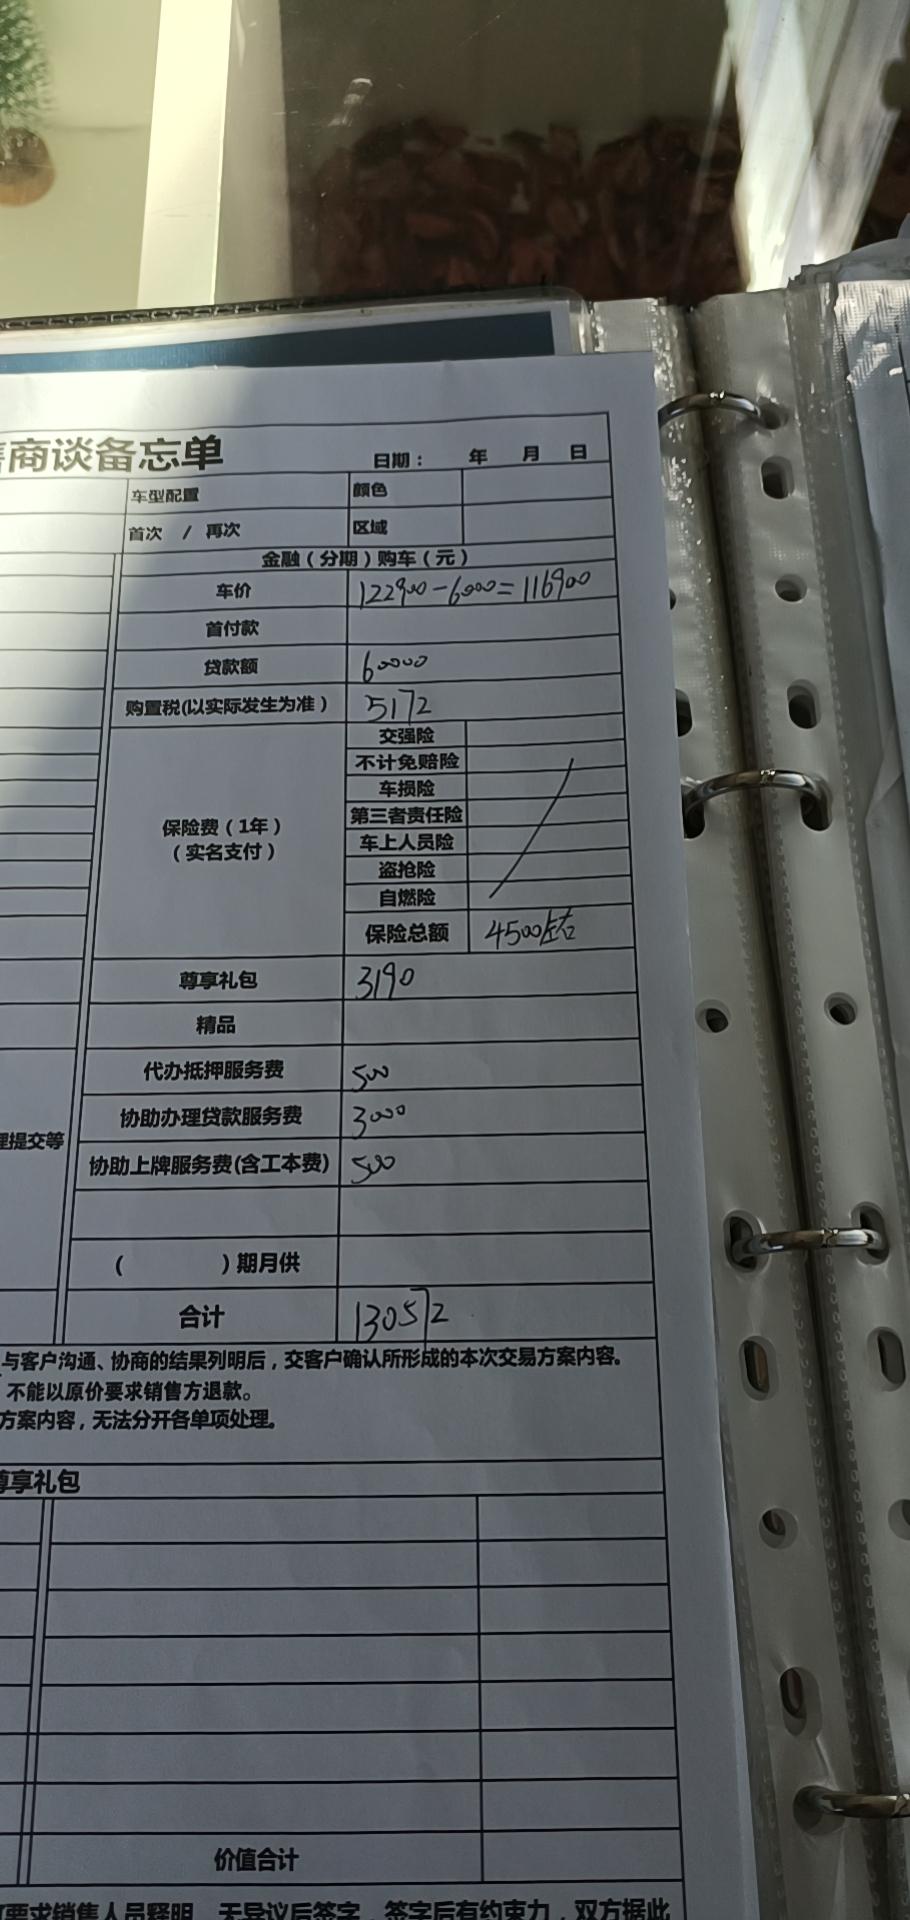 商谈备忘单 日期： 年 月 日
车型配置 颜色
首次 / 再次 区域
金融（分期）购车（元）
车价 122900-6000=116900
首付款
贷款额 60000
购置税(以实际发生为准） 5172
交强险
不计免赔险
车损险
第三者责任险
保险费（1年）
（实名支付）
车上人员险
盗抢险
自燃险
保险总额 4500左右
尊享礼包 3190
精品
代办抵押服务费 500
协助办理贷款服务费 3000
理提交等
协助上牌服务费(含工本费) 500
（ ）期月供
合计 130572
与客户沟通、协商的结果列明后，交客户确认所形成的本次交易方案内容。
不能以原价要求销售方退款。
方案内容，无法分开各单项处理。
尊享礼包
价值合计
要求销售人员释明，无异议后签字，签字后有约束力，双方据此